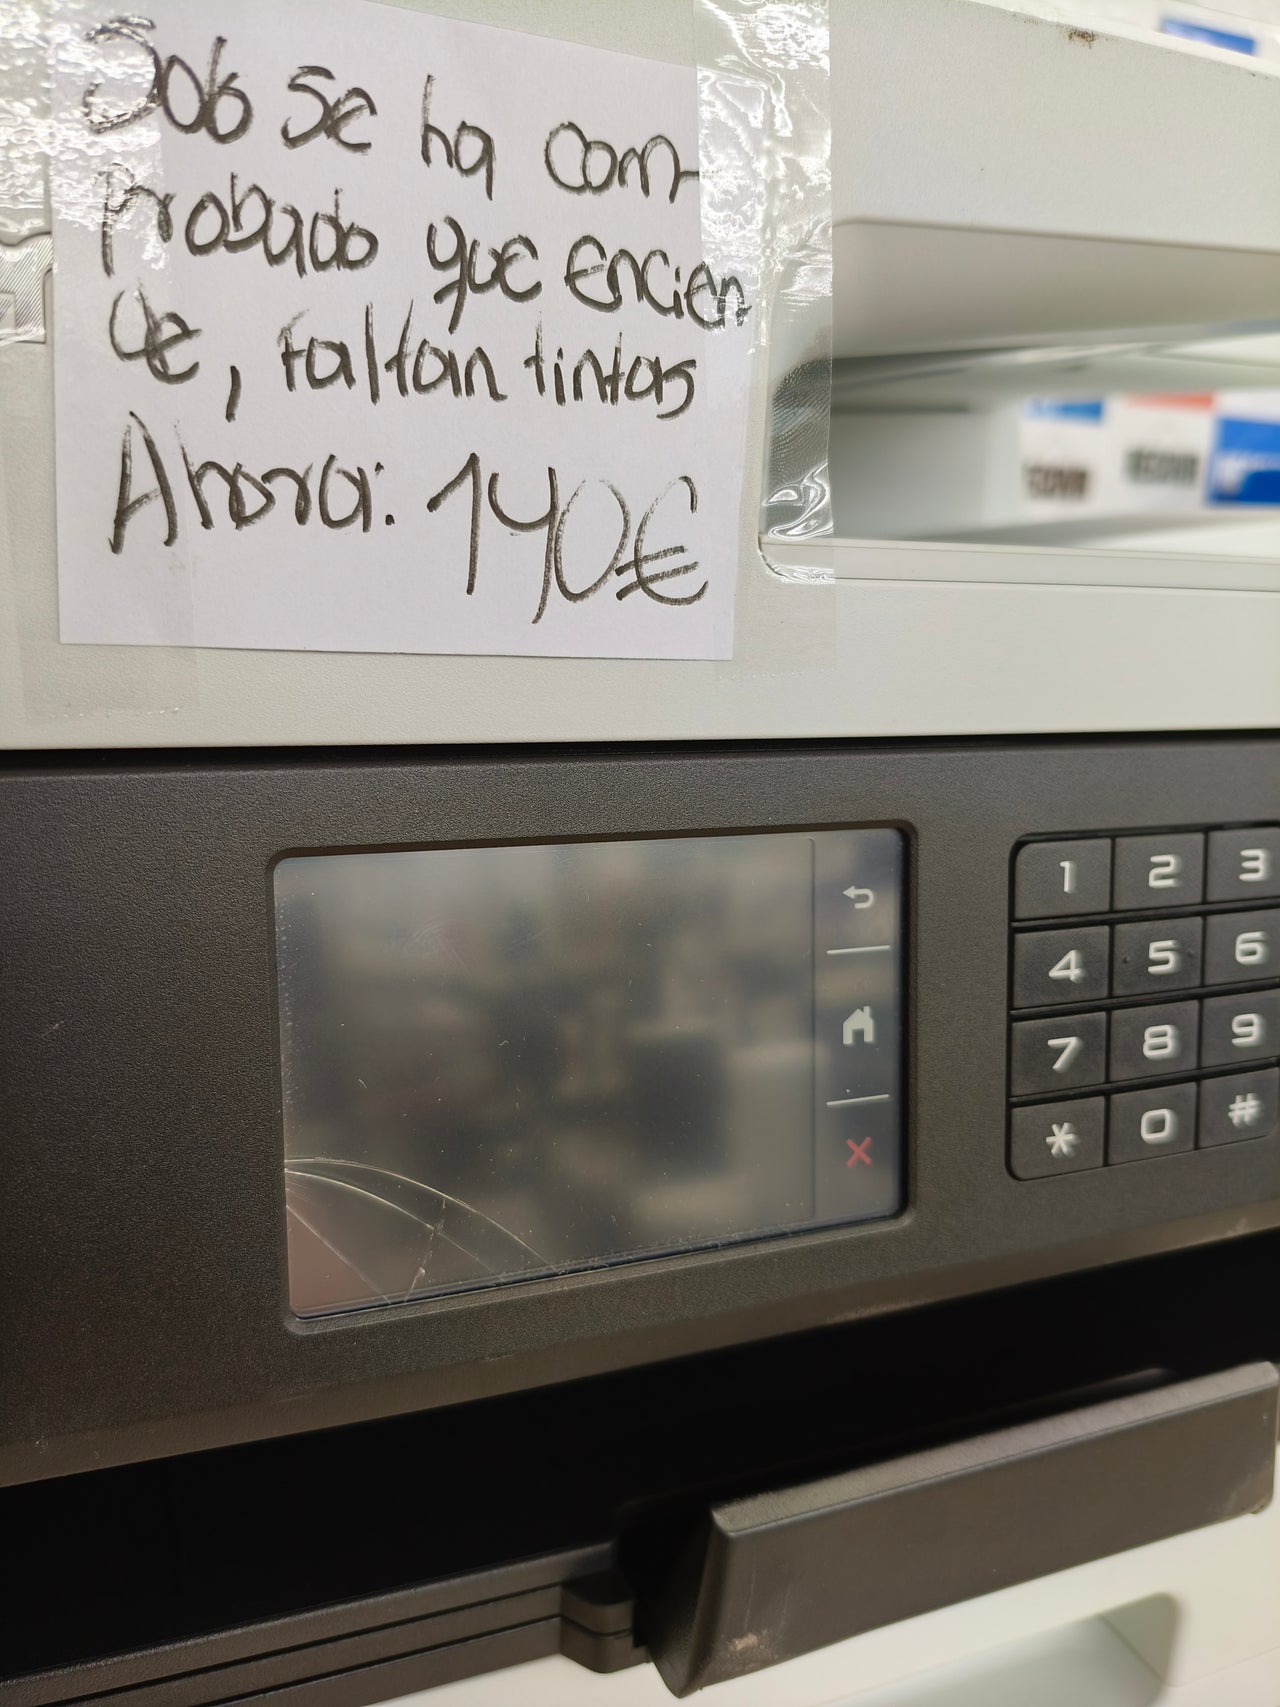 Solo se ha com-
probado que encien-
de, faltan tintas
Ahora: 140€
1 2 3
4 5 6
7 8 9
* 0 #